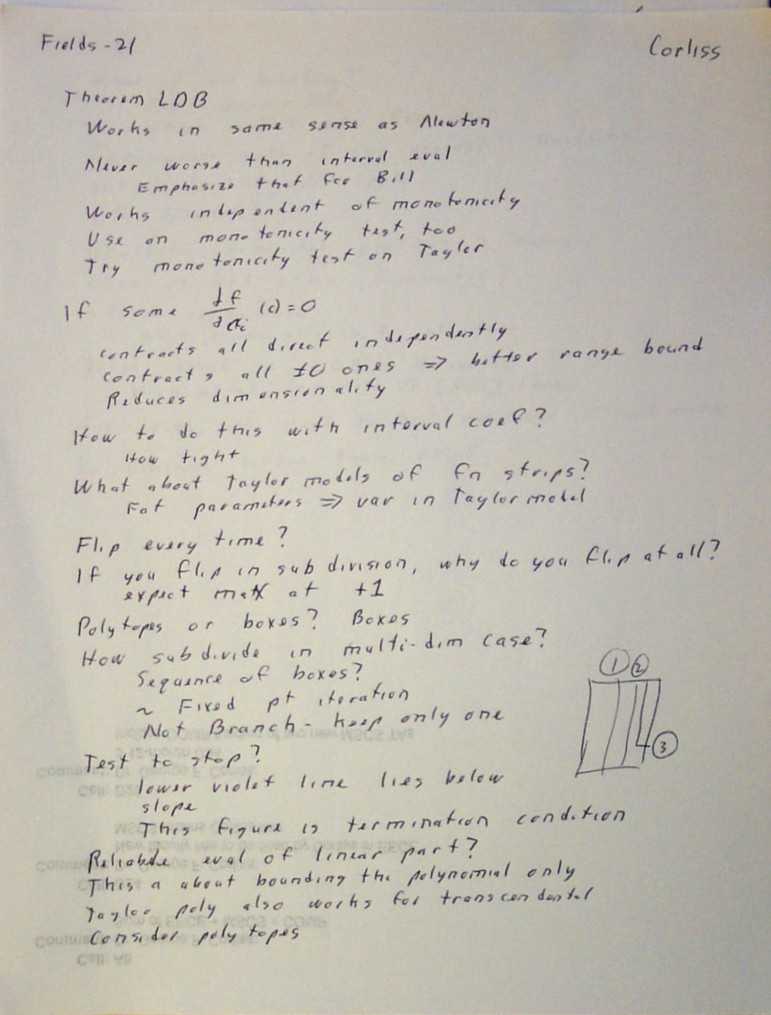 Fields - 21
Corliss
Theorem LDB
Works in same sense as Newton
Never worse than interval eval
Emphasize that for Bill
Works independent of monotonicity
Use on monotonicity test, too
Try monotonicity test on Taylor
If some ∂f/∂xi (c) = 0
contracts all direct independently
contracts all ≠0 ones ⇒ better range bound
Reduces dimensionality
How to do this with interval coef?
How tight
What about Taylor models of fn strips?
Fat parameters ⇒ var in Taylor model
Flip every time?
If you flip in subdivision, why do you flip at all?
expect max at +1
Polytopes or boxes? Boxes
How subdivide in multi-dim case?
Sequence of boxes?
~ Fixed pt iteration
Not Branch - keep only one
1 2
3
Test to stop?
lower violet line lies below
slope
This figure is termination condition
Reliable eval of linear part?
This a about bounding the polynomial only
Taylor poly also works for transcendental
Consider polytopes